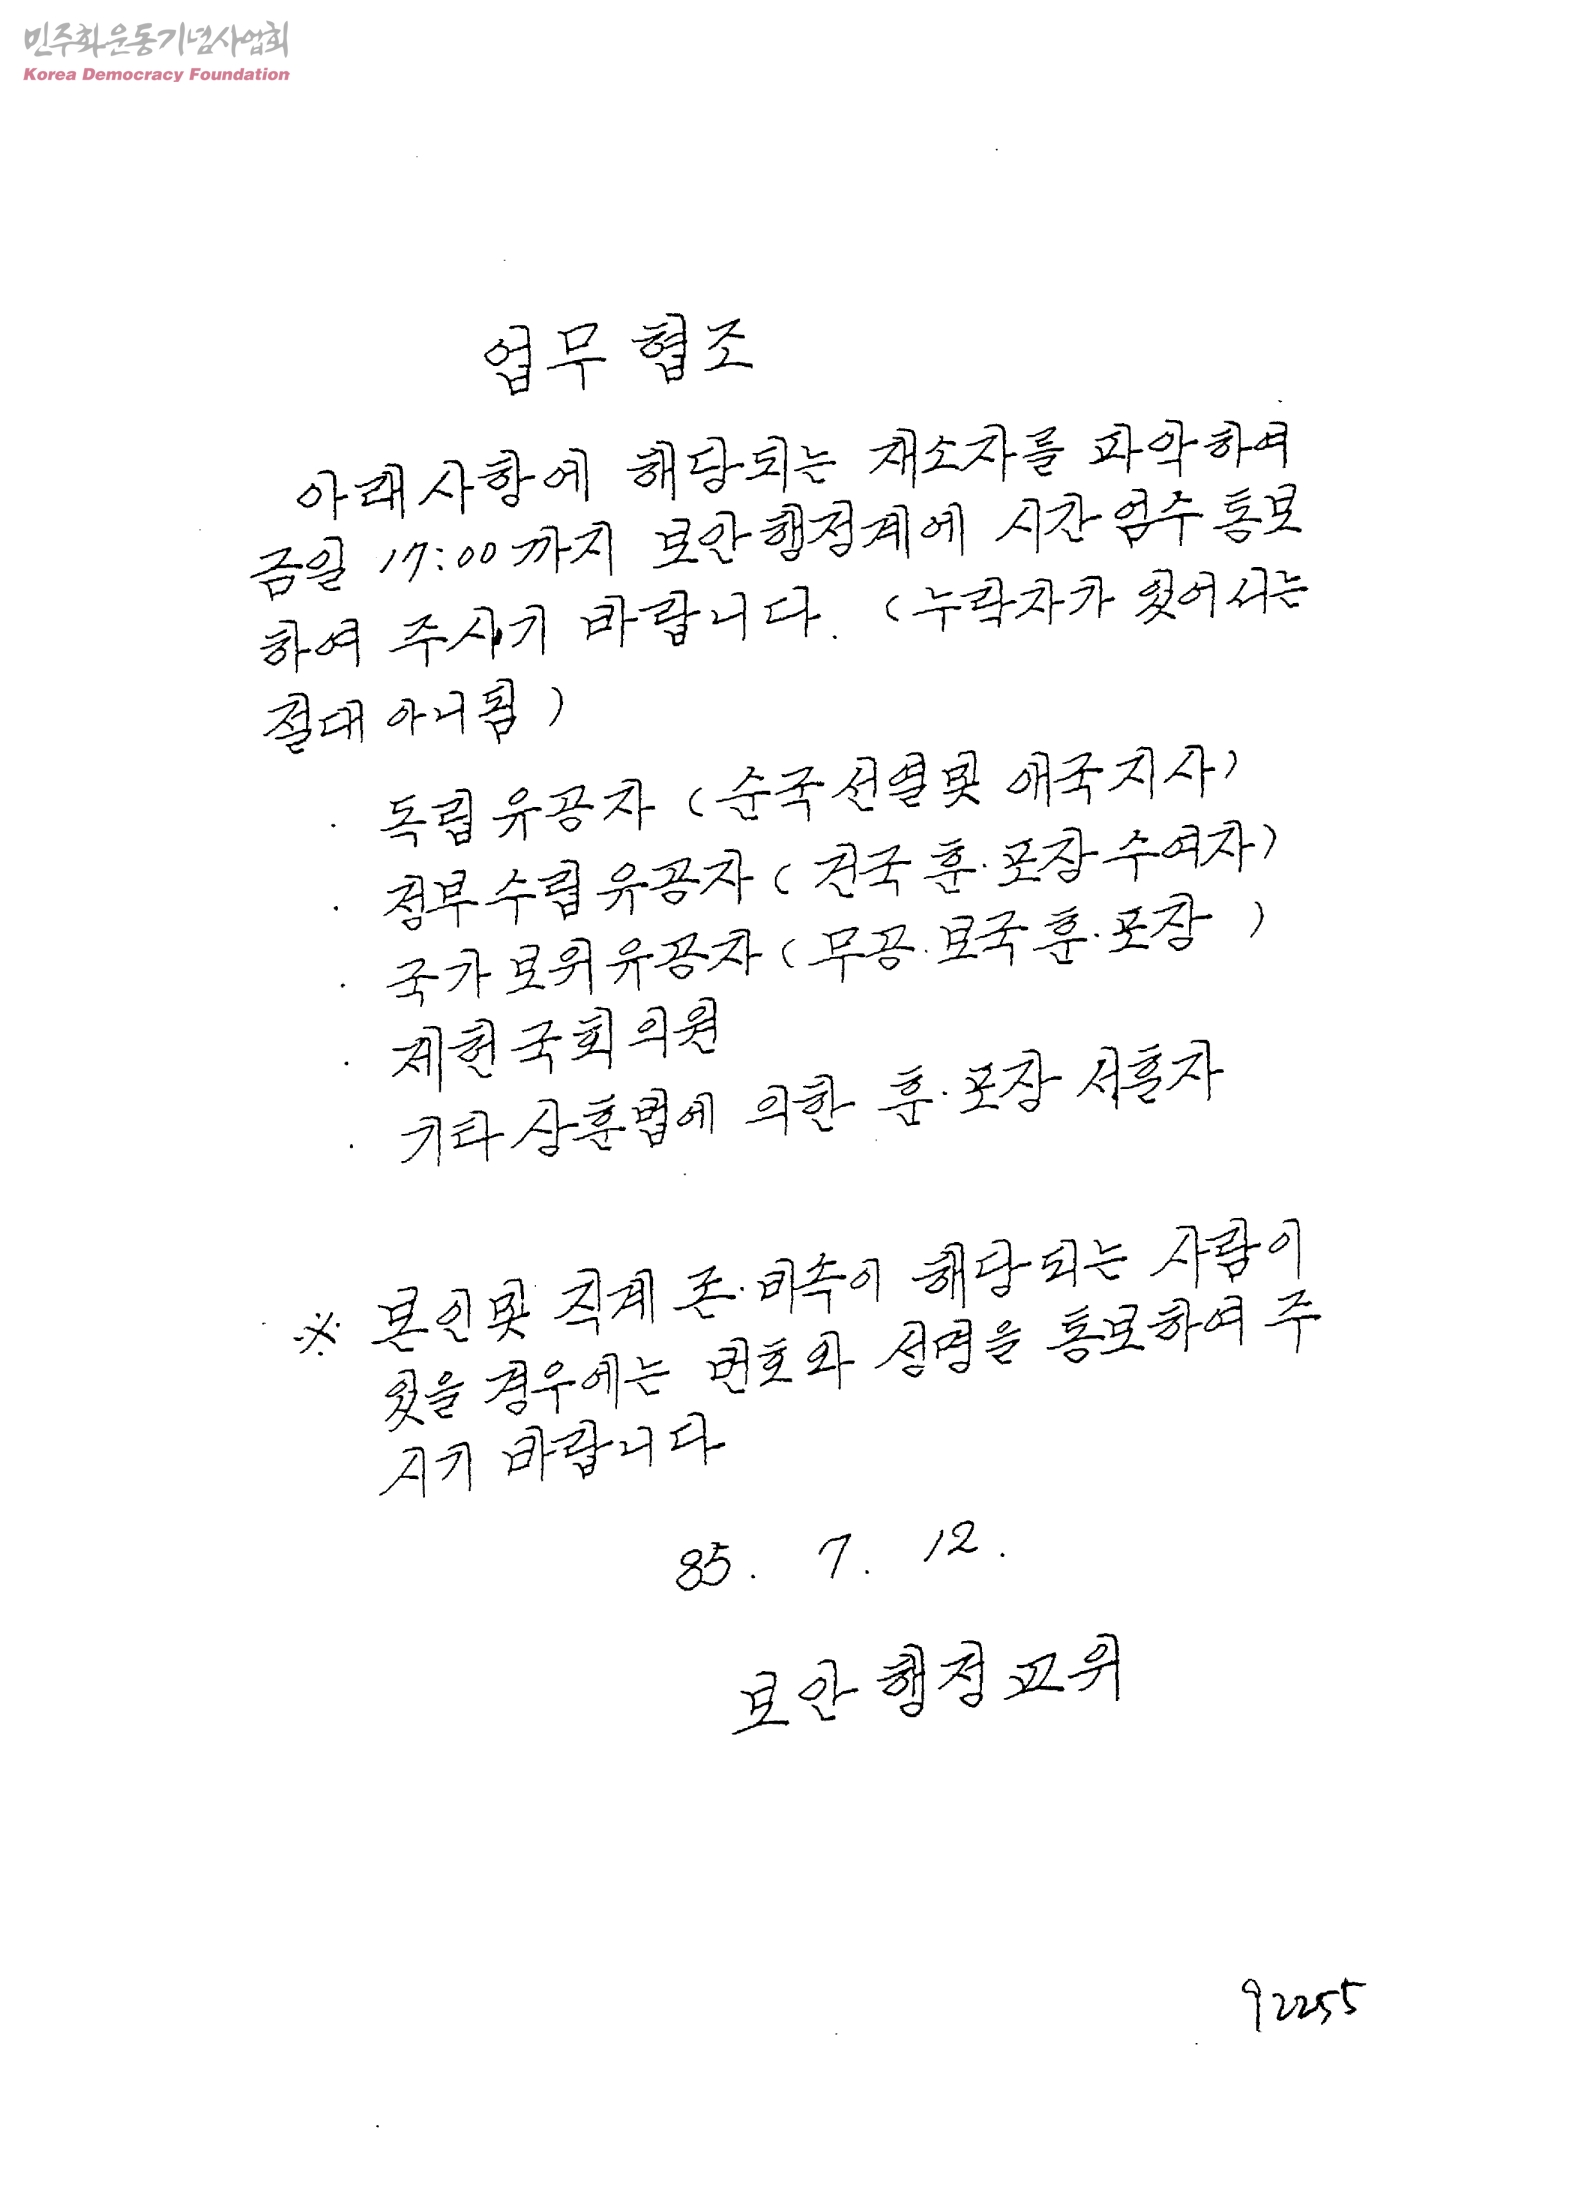 민주화운동기념사업회
Korea Democracy Foundation
업무 협조
아래사항에 해당되는 재소자를 파악하여
금일 17:00까지 보안행정계에 시간엄수 통보
하여 주시기 바랍니다. (누락자가 있어서는
절대 아니됨)
· 독립유공자 (순국선열및 애국지사)
· 정부수립유공자 (건국훈·포장수여자)
· 국가보위유공자 (무공·보국훈·포장)
· 제헌국회의원
· 기타상훈법에 의한 훈·포장 서훈자
※ 본인및 직계 존·비속이 해당되는 사람이
있을 경우에는 번호와 성명을 통보하여 주
시기 바랍니다
85. 7. 12.
보안행정교위
92255